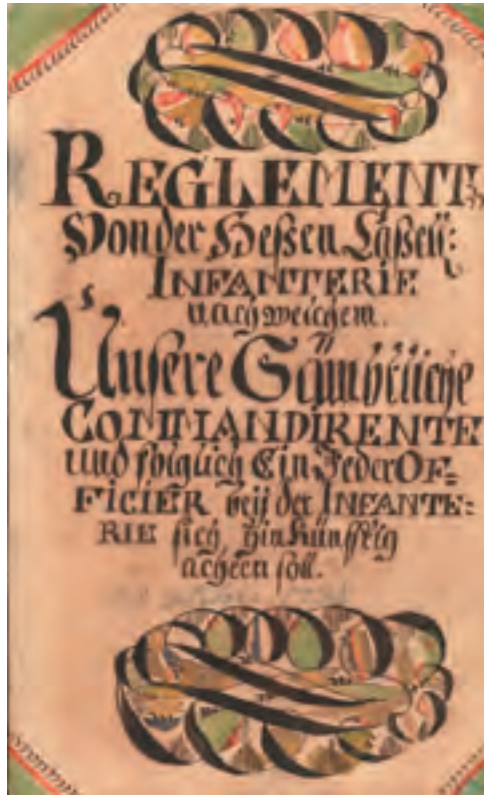 REGLEMENT,
Von der Heßen Caßell:
INFANTERIE
nach welchem.
Unsere Sämbtliche
COMMANDIRENTE
und folglich Ein Jeder OF=
FICIER beÿ der INFANTE=
RIE sich hin künfftig
achten soll.